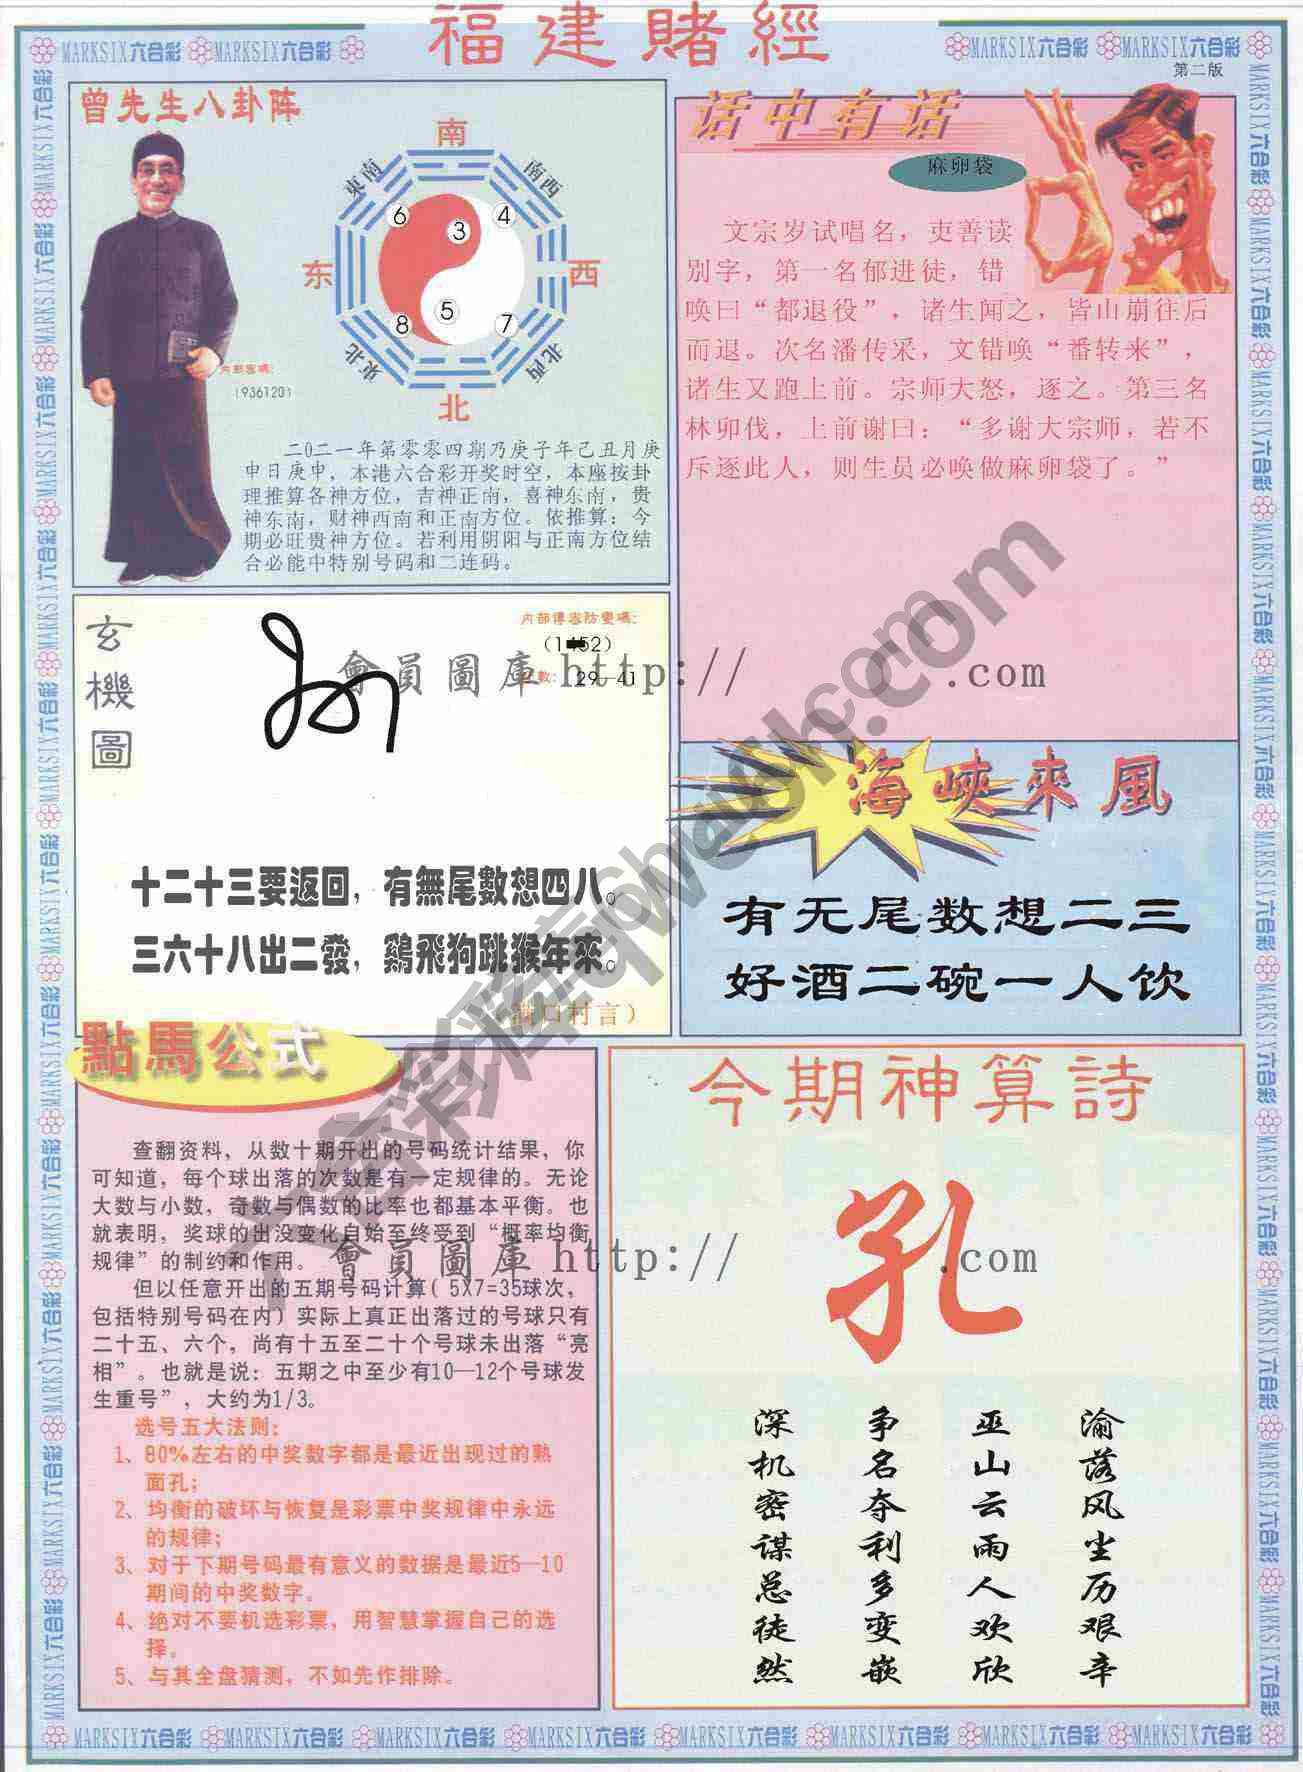 福建賭經
MARKSIX六合彩 MARKSIX六合彩
MARKSIX六合彩 MARKSIX六合彩
第二版
曾先生八卦阵
南
東南
南西
东
西
東北
北西
北
6
3
4
5
8
7
内部密碼：
(936120)
二〇二一年第零零四期乃庚子年己丑月庚
申日庚申，本港六合彩开奖时空，本座按卦
理推算各神方位，吉神正南，喜神东南，贵
神东南，财神西南和正南方位。依推算：今
期必旺贵神方位。若利用阴阳与正南方位结
合必能中特别号码和二连码。
话中有话
麻卵袋
文宗岁试唱名，吏善读
别字，第一名郁进徒，错
唤曰“都退役”，诸生闻之，皆山崩往后
而退。次名潘传采，文错唤“番转来”，
诸生又跑上前。宗师大怒，逐之。第三名
林卯伐，上前谢曰：“多谢大宗师，若不
斥逐此人，则生员必唤做麻卵袋了。”
玄機圖
内部傳密防變碼：
29—41
會員圖庫 http:// .com
十二十三要返回，有無尾數想四八。
三六十八出二發，鷄飛狗跳猴年來。
满口村言）
海峽來風
有无尾数想二三
好酒二碗一人饮
點馬公式
查翻资料，从数十期开出的号码统计结果，你
可知道，每个球出落的次数是有一定规律的。无论
大数与小数，奇数与偶数的比率也都基本平衡。也
就表明，奖球的出没变化自始至终受到“概率均衡
规律”的制约和作用。
但以任意开出的五期号码计算（5X7=35球次，
包括特别号码在内）实际上真正出落过的号球只有
二十五、六个，尚有十五至二十个号球未出落“亮
相”。也就是说：五期之中至少有10—12个号球发
生重号”，大约为1/3。
选号五大法则：
1、80%左右的中奖数字都是最近出现过的熟
面孔；
2、均衡的破坏与恢复是彩票中奖规律中永远
的规律；
3、对于下期号码最有意义的数据是最近5—10
期间的中奖数字。
4、绝对不要机选彩票，用智慧掌握自己的选
择。
5、与其全盘猜测，不如先作排除。
會員圖庫 http:// .com
今期神算詩
孔
渝落风尘历艰辛
巫山云雨人欢欣
争名夺利多变嵌
深机密谋总徒然
MARKSIX六合彩 MARKSIX六合彩 MARKSIX六合彩 MARKSIX六合彩 MARKSIX六合彩 MARKSIX六合彩 MARKSIX六合彩 MARKSIX六合彩